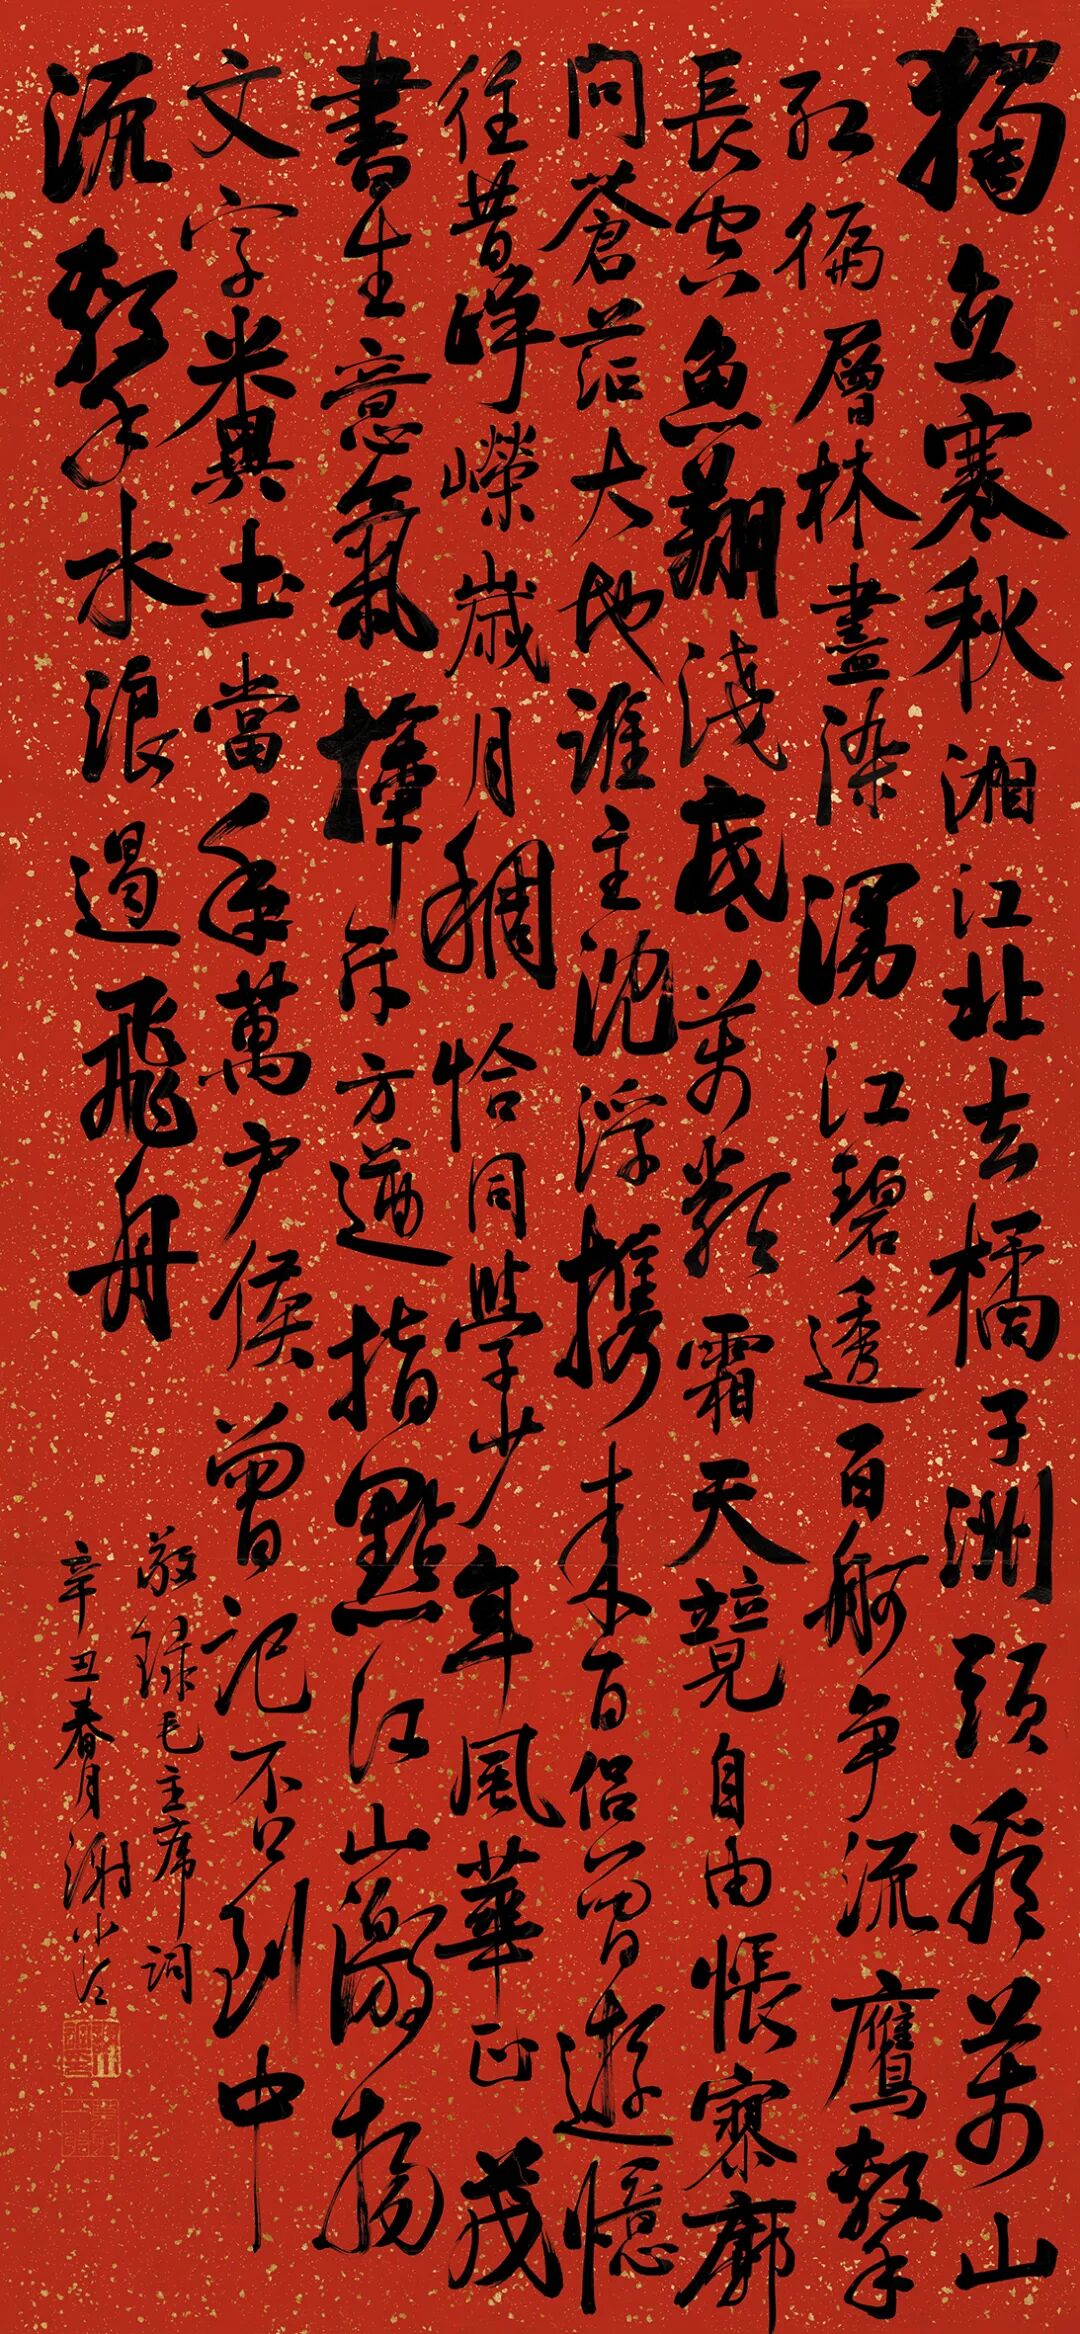 獨立寒秋湘江北去橘子洲頭看萬山
紅徧層林盡染漫江碧透百舸爭流鷹擊
長空魚翔淺底万類霜天競自由悵寥廓
問蒼茫大地誰主沈浮攜來百侶曾遊憶
往昔崢嶸歲月稠恰同學少年風華正茂
書生意氣揮斥方遒指點江山激揚
文字糞土當年萬戶侯曾記否到中
流擊水浪遏飛舟
敬錄毛主席詞
辛丑春月謝小